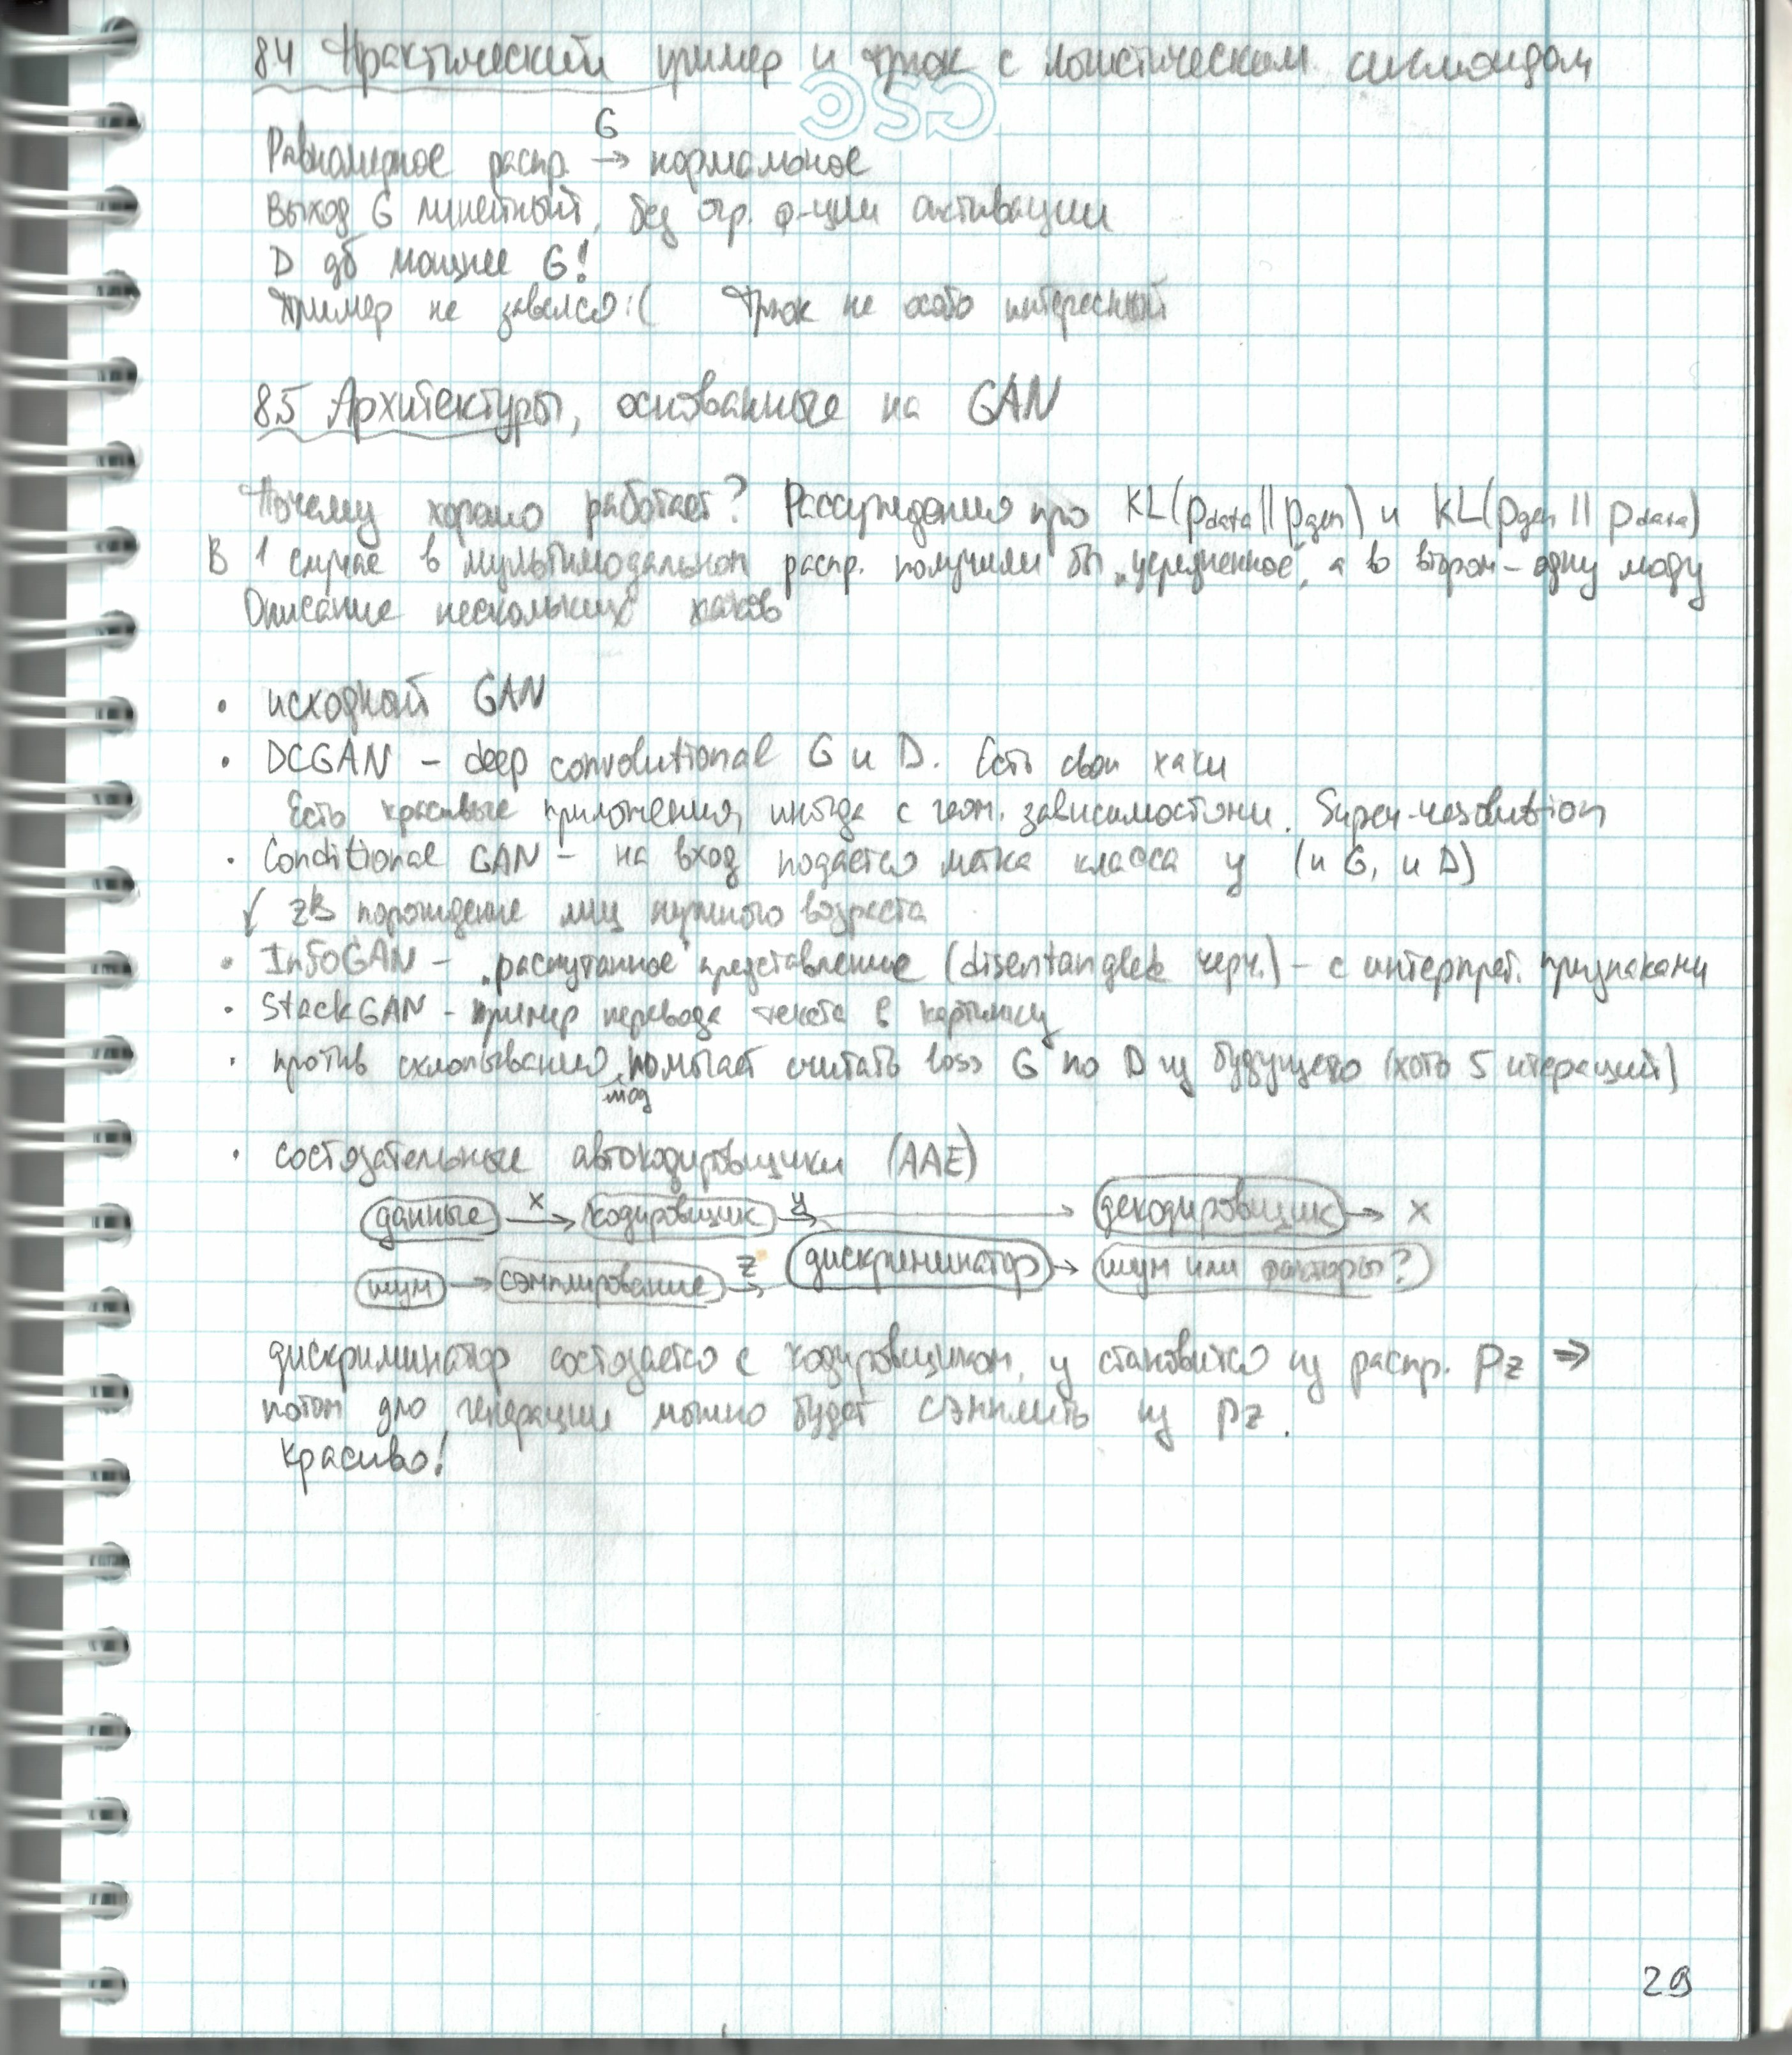 8.4 Практический пример и трюк с логистическим сигмоидом
CSC
G
Равномерное распр. → нормальное
Выход G линейный, без огр. ф-ции активации
D дб мощнее G!
Пример не завелся :( Трюк не особо интересный
8.5 Архитектуры, основанные на GAN
Почему хорошо работает? Рассуждения про KL(pdata || pgen) и KL(pgen || pdata)
В 1 случае в мультимодальном распр. получили бы „усредненное", а во втором - одну моду
Описание нескольких хаков
• исходный GAN
• DCGAN - deep convolutional G и D. Есть свои хаки
Есть красивые приложения, иногда с геом. зависимостями. Super-resolution
• Conditional GAN - на вход подаётся метка класса y (и G, и D)
↙ zB порождение лиц нужного возраста
• InfoGAN - „распутанное" представление (disentangled repr.) - с интерпрет. признаками
• StackGAN - пример перевода текста в картинку
• против схлопывания помогает считать loss G по D из будущего (хоть 5 итераций)
мод
• состязательные автокодировщики (AAE)
данные x → кодировщик y → декодировщик → x
шум → сэмплирование z → дискриминатор → шум или факторы?
дискриминатор состязается с кодировщиком, y становится из распр. pz ⇒
потом для генерации можно будет сэмплить из pz.
Красиво!
29